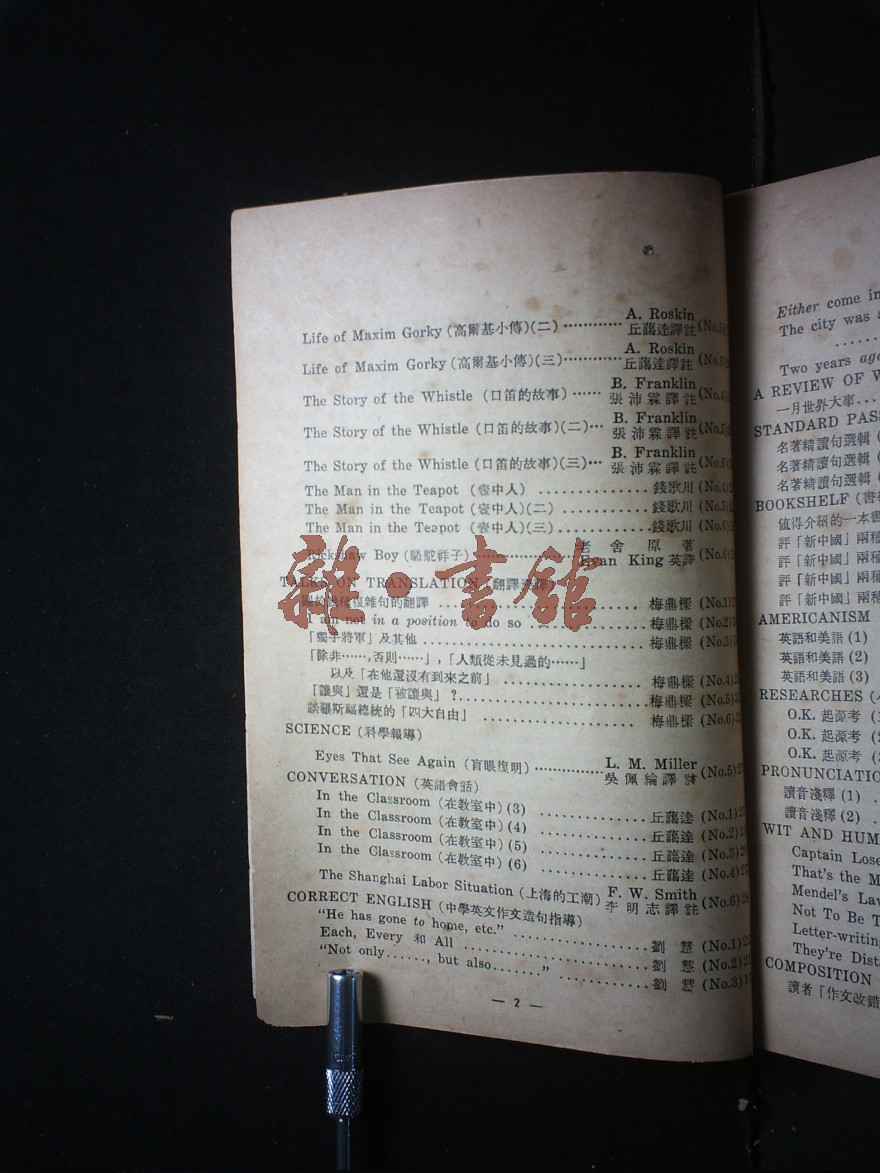 Life of Maxim Gorky (高爾基小傳)(二) ………… A. Roskin 丘藹逵譯註 (No.5)
Life of Maxim Gorky (高爾基小傳)(三) ………… A. Roskin 丘藹逵譯註 (No.6)
The Story of the Whistle (口笛的故事) …… B. Franklin 張沛霖譯註 (No.4)
The Story of the Whistle (口笛的故事)(二)… B. Franklin 張沛霖譯註 (No.5)
The Story of the Whistle (口笛的故事)(三)… B. Franklin 張沛霖譯註 (No.6)
The Man in the Teapot (壺中人) ………… 錢歌川 (No.4)
The Man in the Teapot (壺中人)(二) ………… 錢歌川 (No.5)
The Man in the Teapot (壺中人)(三) ………… 錢歌川 (No.6)
Rickshaw Boy (駱駝祥子) ………… 老舍原著 Evan King 英譯 (No.6)
TALKS ON TRANSLATION (翻譯
複雜句的翻譯 ………… 梅鼎樑 (No.1)
I am not in a position to do so ………… 梅鼎樑 (No.2)
「獨子將軍」及其他 ………… 梅鼎樑 (No.3)
「除非……,否則……」,「人類從未見過的……」
以及「在他還沒有到來之前」 ………… 梅鼎樑 (No.4)
「讓與」還是「被讓與」?………… 梅鼎樑 (No.5)
談羅斯福總統的「四大自由」 ………… 梅鼎樑 (No.6)
SCIENCE (科學報導)
Eyes That See Again (盲眼復明) ………… L. M. Miller 吳佩綸譯註 (No.5)
CONVERSATION (英語會話)
In the Classroom (在教室中) (3) ………… 丘藹逵 (No.1)
In the Classroom (在教室中) (4) ………… 丘藹逵 (No.2)
In the Classroom (在教室中) (5) ………… 丘藹逵 (No.3)
In the Classroom (在教室中) (6) ………… 丘藹逵 (No.4)
The Shanghai Labor Situation (上海的工潮) F. W. Smith 李明志譯註 (No.6)
CORRECT ENGLISH (中學英文作文造句指導)
"He has gone to home, etc." ………… 劉慧 (No.1)
Each, Every 和 All ………… 劉慧 (No.2)
"Not only……, but also……" ………… 劉慧 (No.3)
— 2 —
Either come in
The city was
Two years ago
A REVIEW OF
一月世界大事...
STANDARD
名著精讀句選輯
名著精讀句選輯
名著精讀句選輯
BOOKSHELF
值得介紹的一本書
評「新中國」兩種
評「新中國」兩種
評「新中國」兩種
評「新中國」兩種
AMERICANISM
英語和美語 (1)
英語和美語 (2)
英語和美語 (3)
RESEARCHES
O.K. 起源考 (1)
O.K. 起源考
O.K. 起源考
讀音淺釋 (1)
讀音淺釋 (2)
WIT AND
Captain
That's the
Mendel's
Not To Be
Letter-writing
They're
COMPOSITION
讀者「作文改錯
雜·書館